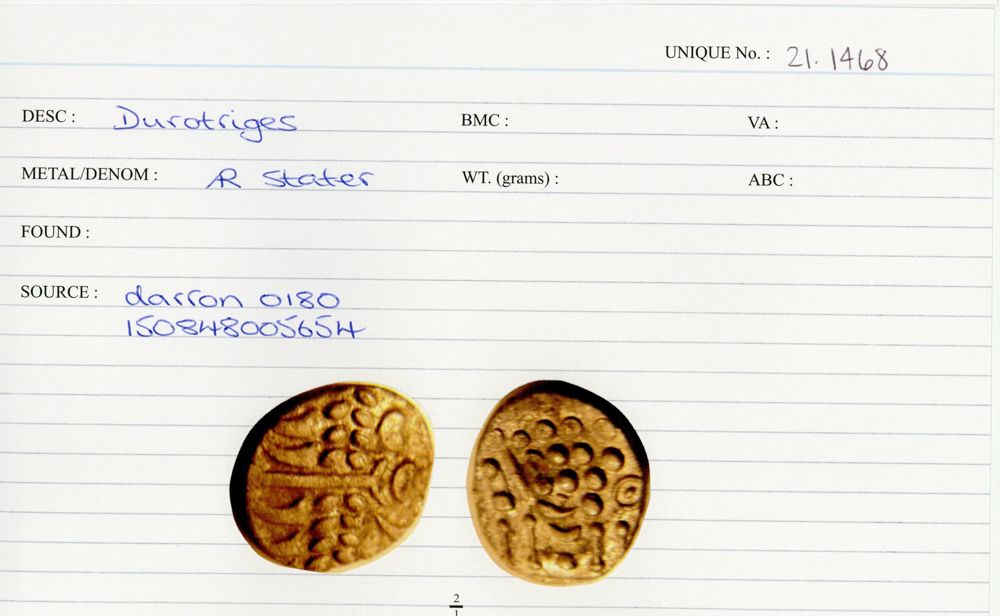 UNIQUE No. : 21. 1468
DESC : Durotriges BMC : VA :
METAL/DENOM : AR Stater WT. (grams) : ABC :
FOUND :
SOURCE : darron 0180
150848005654
2
1